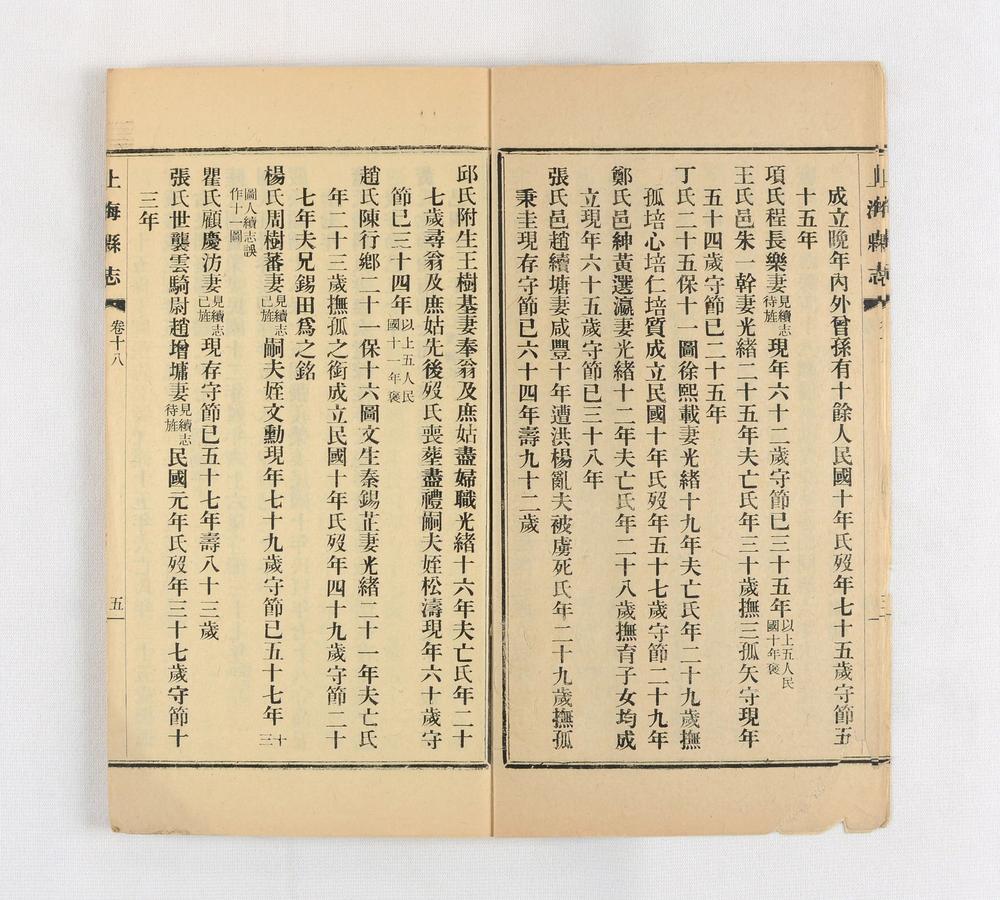 上海縣志
成立晚年內外曾孫有十餘人民國十年氏歿年七十五歲守節五
十五年
項氏程長樂妻見續志待旌現年六十二歲守節已三十五年以上五人民國十年褒
王氏邑朱一幹妻光緒二十五年夫亡氏年三十歲撫三孤矢守現年
五十四歲守節已二十五年
丁氏二十五保十一圖徐熙載妻光緒十九年夫亡氏年二十九歲撫
孤培心培仁培質成立民國十年氏歿年五十七歲守節二十九年
鄭氏邑紳黃選瀛妻光緒十二年夫亡氏年二十八歲撫育子女均成
立現年六十五歲守節已三十八年
張氏邑趙續塘妻咸豐十年遭洪楊亂夫被虜死氏年二十九歲撫孤
秉圭現存守節已六十四年壽九十二歲
邱氏附生王樹基妻奉翁及庶姑盡婦職光緒十六年夫亡氏年二十
七歲尋翁及庶姑先後歿氏喪葬盡禮嗣夫姪松濤現年六十歲守
節已三十四年以上五人民國十一年褒
趙氏陳行鄉二十一保十六圖文生秦錫芷妻光緒二十一年夫亡氏
年二十三歲撫孤之銜成立民國十年氏歿年四十九歲守節二十
七年夫兄錫田爲之銘
楊氏周樹蕃妻見續志已旌嗣夫姪文勳現年七十九歲守節已五十七年十三
圖人續志誤作十一圖
瞿氏顧慶汸妻見續志已旌現存守節已五十七年壽八十三歲
張氏世襲雲騎尉趙增墉妻見續志待旌民國元年氏歿年三十七歲守節十
三年
上海縣志
卷十八
五